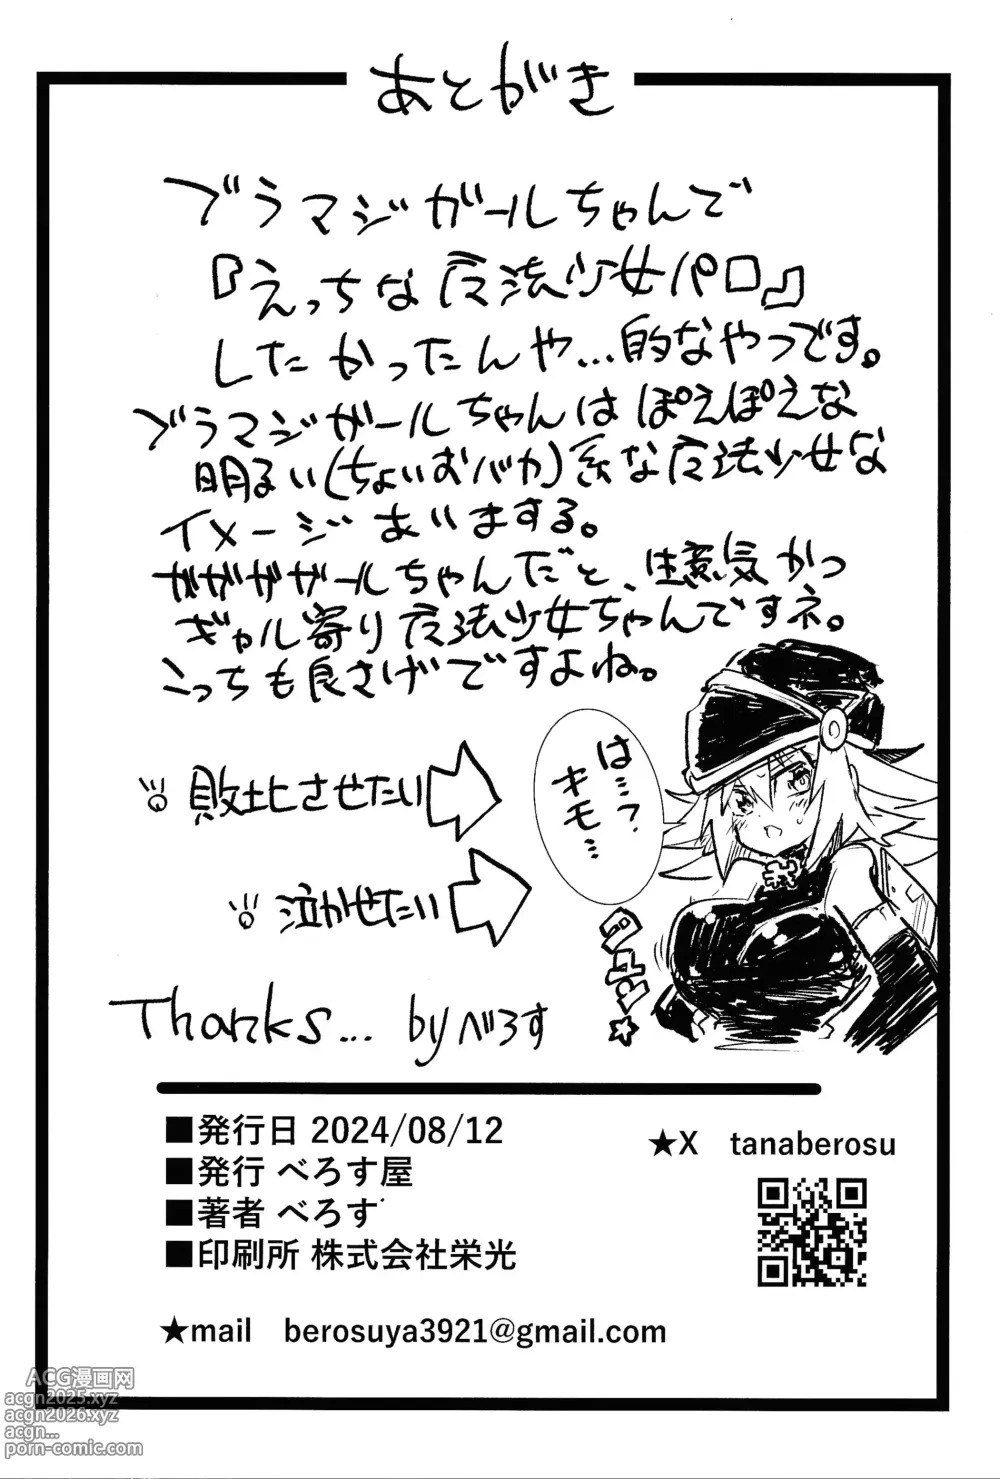 あとがき
ブラマジガールちゃんで
『えっちな魔法少女パロ』
したかったんや…的なやつです。
ブラマジガールちゃんはぽえぽえな
明るい(ちょいおバカ)系な魔法少女な
イメージありまする。
ガガガガールちゃんだと、生意気かつ
ギャル寄り魔法少女ちゃんですネ。
こっちも良さげですよね。
敗北させたい
泣かせたい
は…?
キモ…
Thanks... by べろす
■発行日 2024/08/12
■発行 べろす屋
■著者 べろす
■印刷所 株式会社栄光
★X tanaberosu
★mail berosuya3921@gmail.com
ACG漫画网
acgn2025.xyz
acgn2026.xyz
acgn...
porn-comic.com